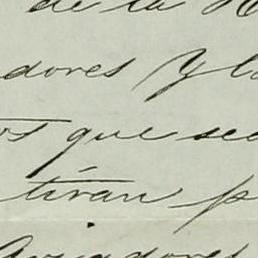 de la H
dores y la
os que sea
tiran p
aviadores